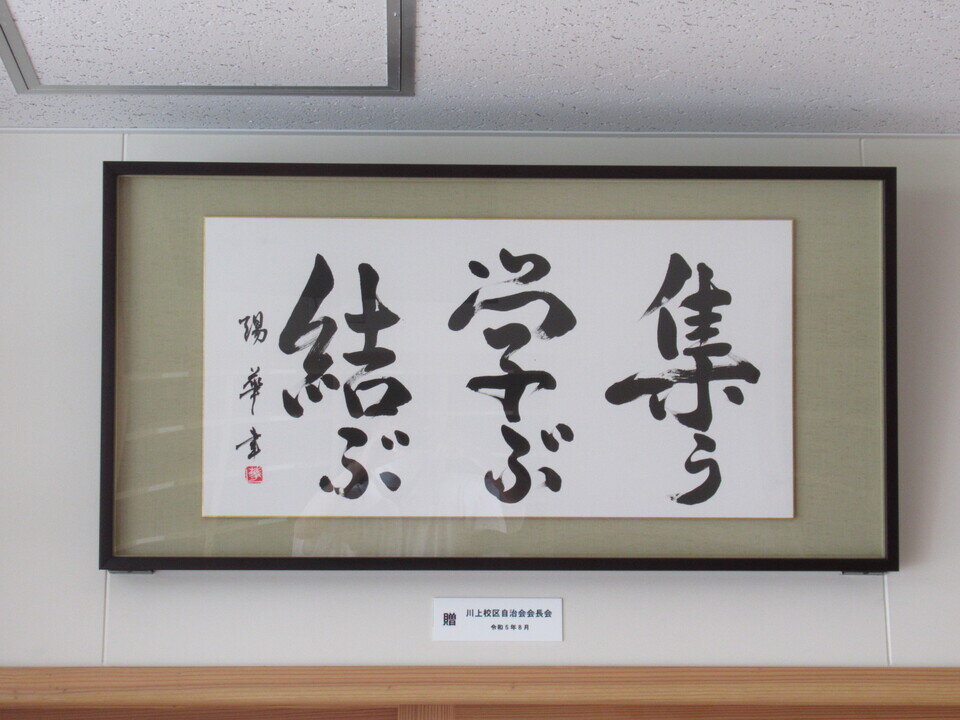 集う
学ぶ
結ぶ
陽華書
贈 川上校区自治会会長会
令和5年8月